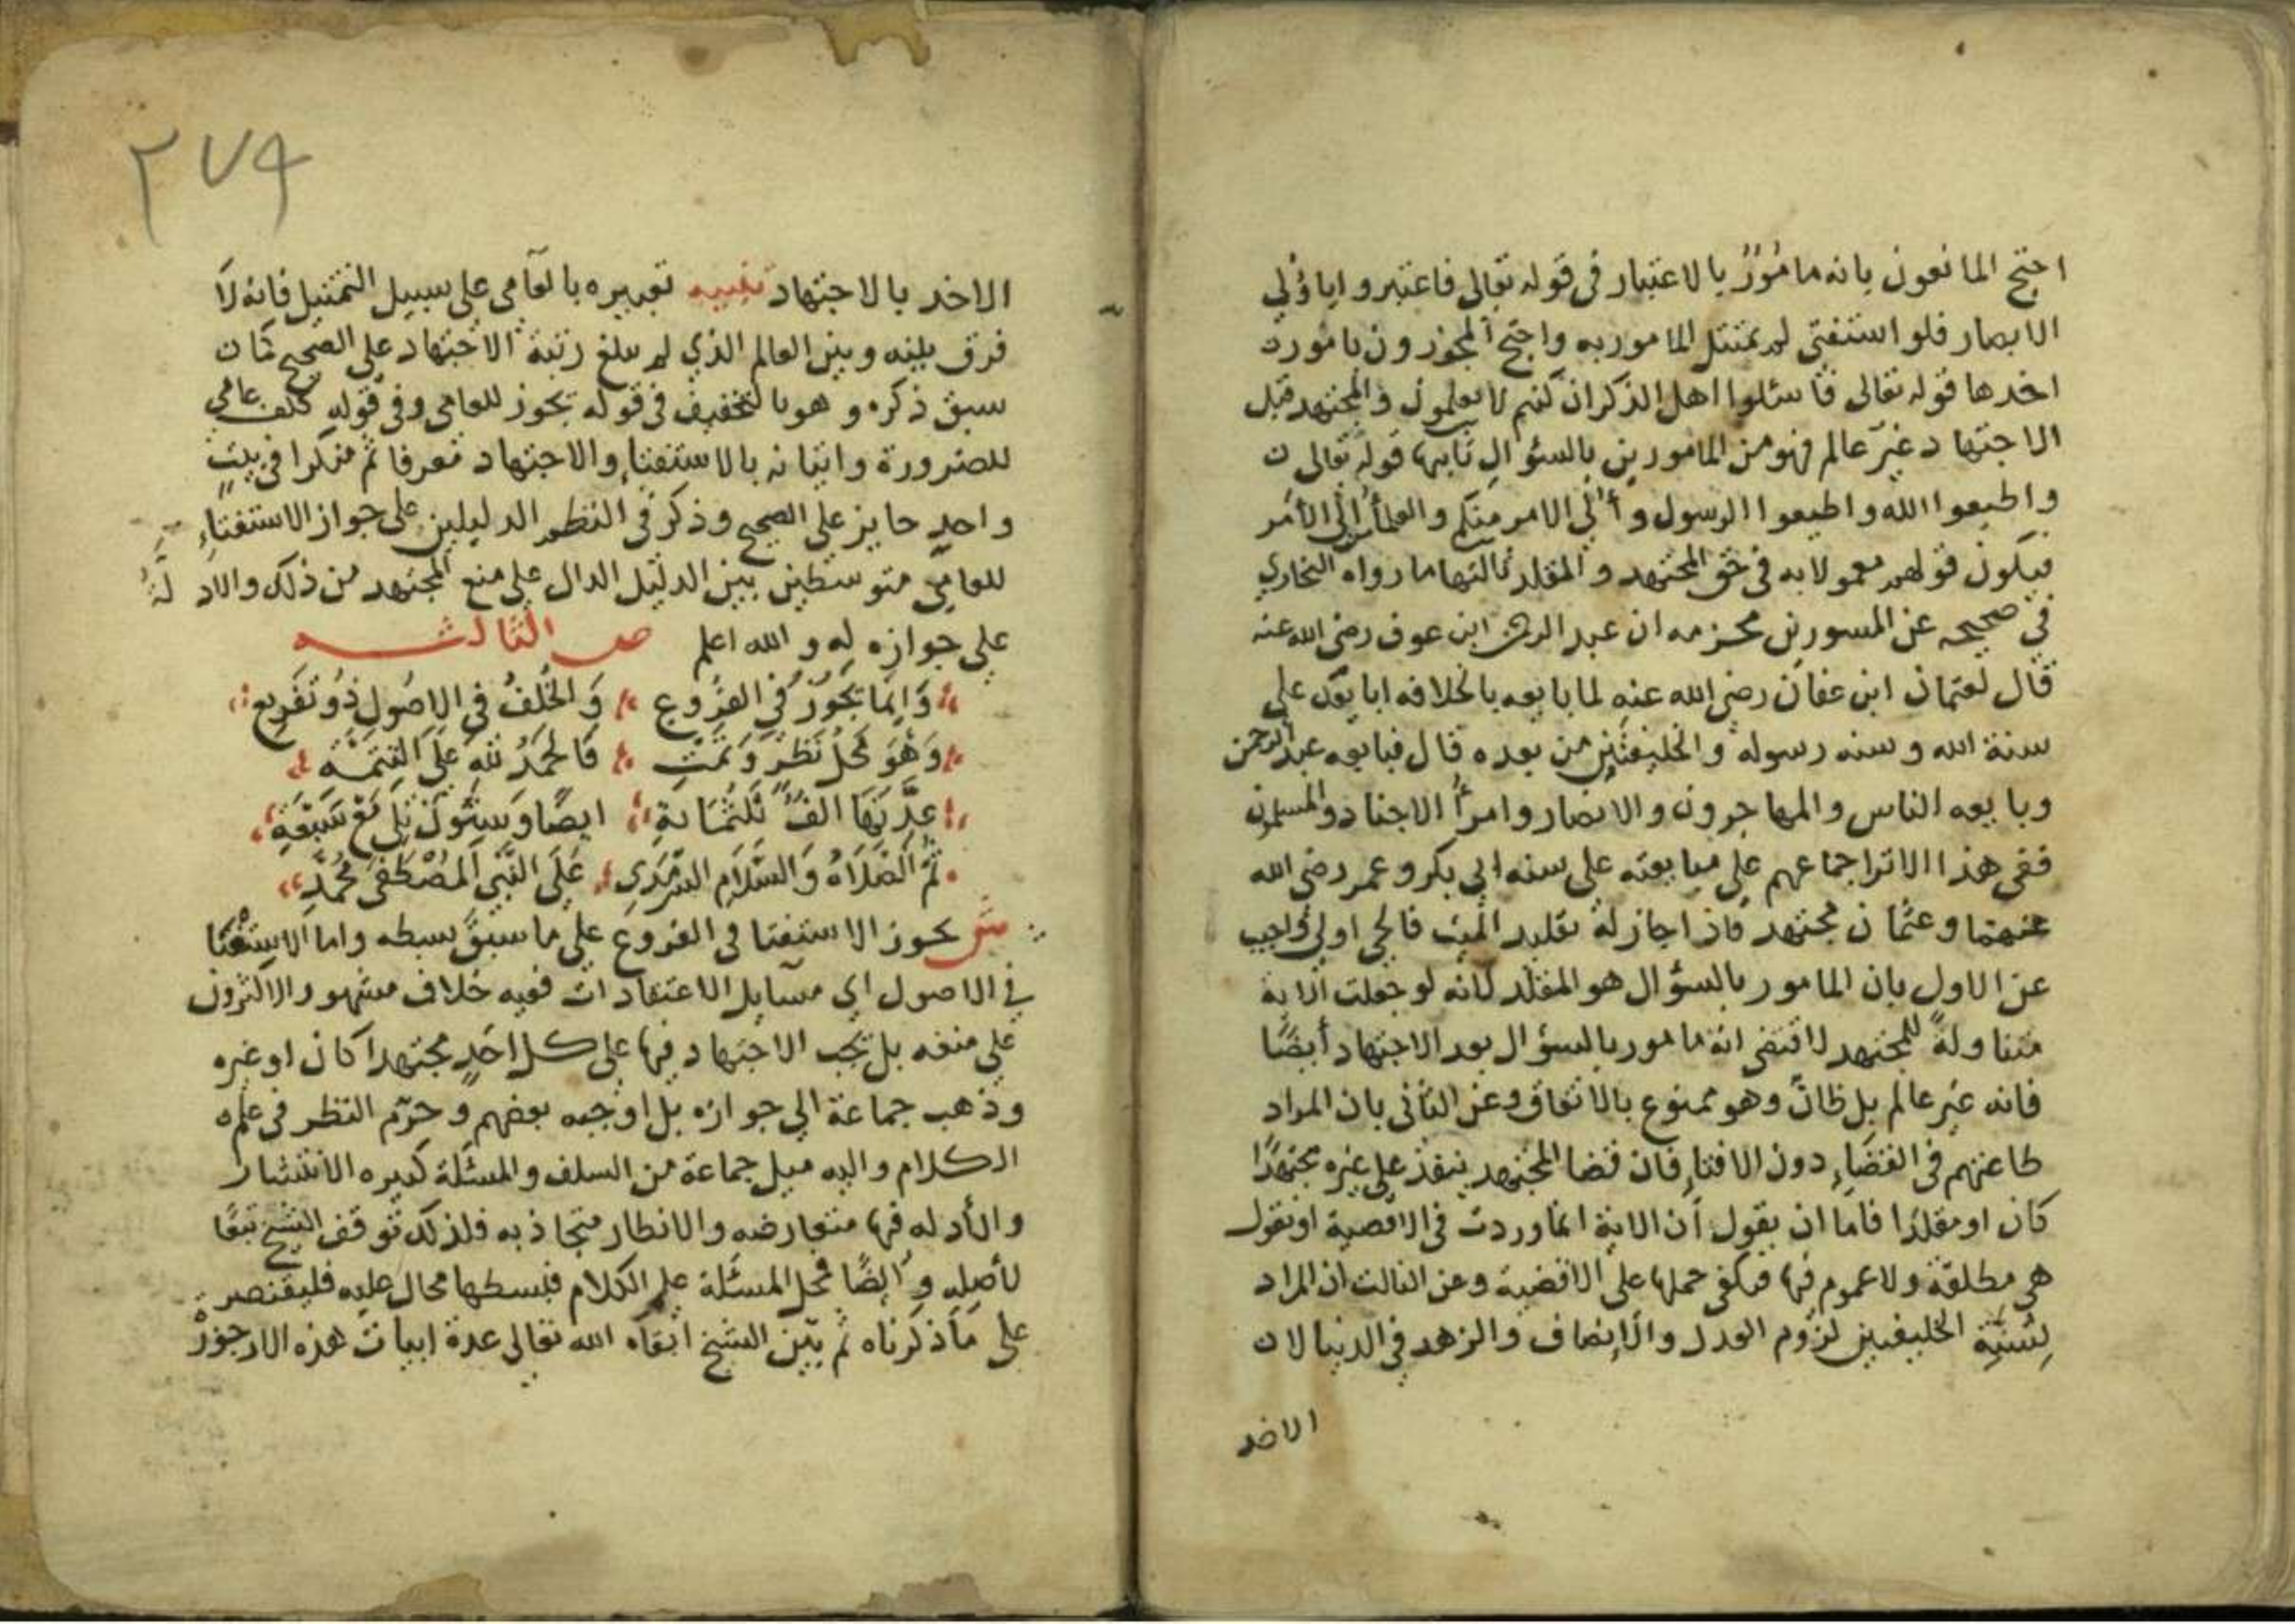 احتج المانعون بانه مامُورٌ بالاعتبار فى قوله تعالى فاعتبروا يا أولي
الابصار فلو استفتى لم يمتثل المامور به واحتج المجوزون بامورٍ
احدها قوله تعالى فاسئلوا اهل الذكر ان كنتم لا تعلمون والمجتهد قبل
الاجتهاد غير عالم فهو من المامورين بالسؤال ثانيها قوله تعالى
واطيعوا الله واطيعوا الرسول وأُلى الامر منكم والعلماء أولى الأمر
فيكون قولهم معمولا به في حق المجتهد والمقلد ثالثها ما رواه البخاري
في صحيحه عن المسور بن محزمه ان عبد الرحمن ابن عوف رضي الله عنه
قال لعثمان ابن عفان رضي الله عنه لما بايعه بالخلافه ابايعك على
سنة الله وسنه رسوله والخليفتين من بعده قال فبايعه عبد الرحمن
وبايعه الناس والمهاجرون والانصار وامرأ الاجناد والمسلمون
ففى هذا الاثر اجماعهم على مبايعته على سنه ابي بكر وعمر رضي الله
عنهما وعثمان مجتهد فاذا جاز له تقليد الميت فالحي اولى واجيب
عن الاول بان المامور بالسؤال هو المقلد لانه لو جعلت الآية
متناولةً للمجتهد لاقتضى انه مامور بالسؤال بعد الاجتهاد أيضًا
فانه غير عالم بل ظانٌ وهو ممنوع بالاتفاق وعن الثاني بان المراد
طاعتهم في القضاءِ دون الافتاءِ فان قضا المجتهد ينفذ على غيره مجتهدًا
كان او مقلدًا فاما ان يقول أن الاية انما وردت في الاقضية او نقول
هي مطلقة ولا عموم فيها فيكفى حملها على الاقضية وعن الثالث ان المراد
بسُنَّة الخليفتين لزوم العدل والإنصاف والزهد في الدنيا لان
الاخذ
٢٧٩
الاخذ بالاجتهاد تنبيه تعبيره بالعآمي على سبيل التمثيل فانه لا
فرق بينه وبين العالم الذي لم يبلغ رتبة الاجتهاد على الصحيح كما
سبق ذكره وهو بالتخفيف في قوله يجوز للعامي وفى قوله كلف عامي
للضرورة واتيانه بالاستفتاءِ والاجتهاد معرفا ثم منكرا في بيتٍ
واحدٍ جايز على الصحيح وذكر في النظم الدليلين على جواز الاستفتاءِ
للعامي متوسطين بين الدليل الدال على منع المجتهد من ذلك والادلَّةُ
على جوازِه له والله اعلم ص الثالثه
وَإنما يَجُوزُ في الفُرُوعِ وَالخُلفُ في الاصُولِ ذُو تَفريعِ
وَهْوَ مَحَلُّ نَظَرٍ وَتَمَّتِ فَالحَمْدُ للهِ عَلَى التتمَّةِ
عِدَّتهَا ألفٌ ثَلثُمَايةِ ايضًا وَستونَ تلي مَعْ سَبْعَةِ
ثُمَّ الصَّلَاةُ وَالسَّلَامُ السَّرْمَدِي عَلَى النَّبي المصْطَفَى مُحَمَّدِ
ش يجوز الاستفتا في الفروع على ما سبق بسطه واما الاستفتا
في الاصول اي مسآيل الاعتقادات ففيه خلاف مشهور والاكثرون
على منعه بل يجب الاجتهاد فيها على كل احَدٍ مجتهدا كان او غيره
وذهب جماعة الي جوازه بل اوجبه بعضهم وحرّم النظر فى علم
الكلام واليه ميل جماعة من السلف والمسئلة كبيره الانتشار
والأدله فيها متعارضه والانظار متجاذبه فلذلك توقف الشيخ تبعًا
لأصله وايضًا فمحل المسئلة علم الكلام فبسطها محال عليه فليقتصر
على مَا ذكرناه ثم بيّن الشيخ ابقآه الله تعالى عدة ابيات هذه الارجوزة